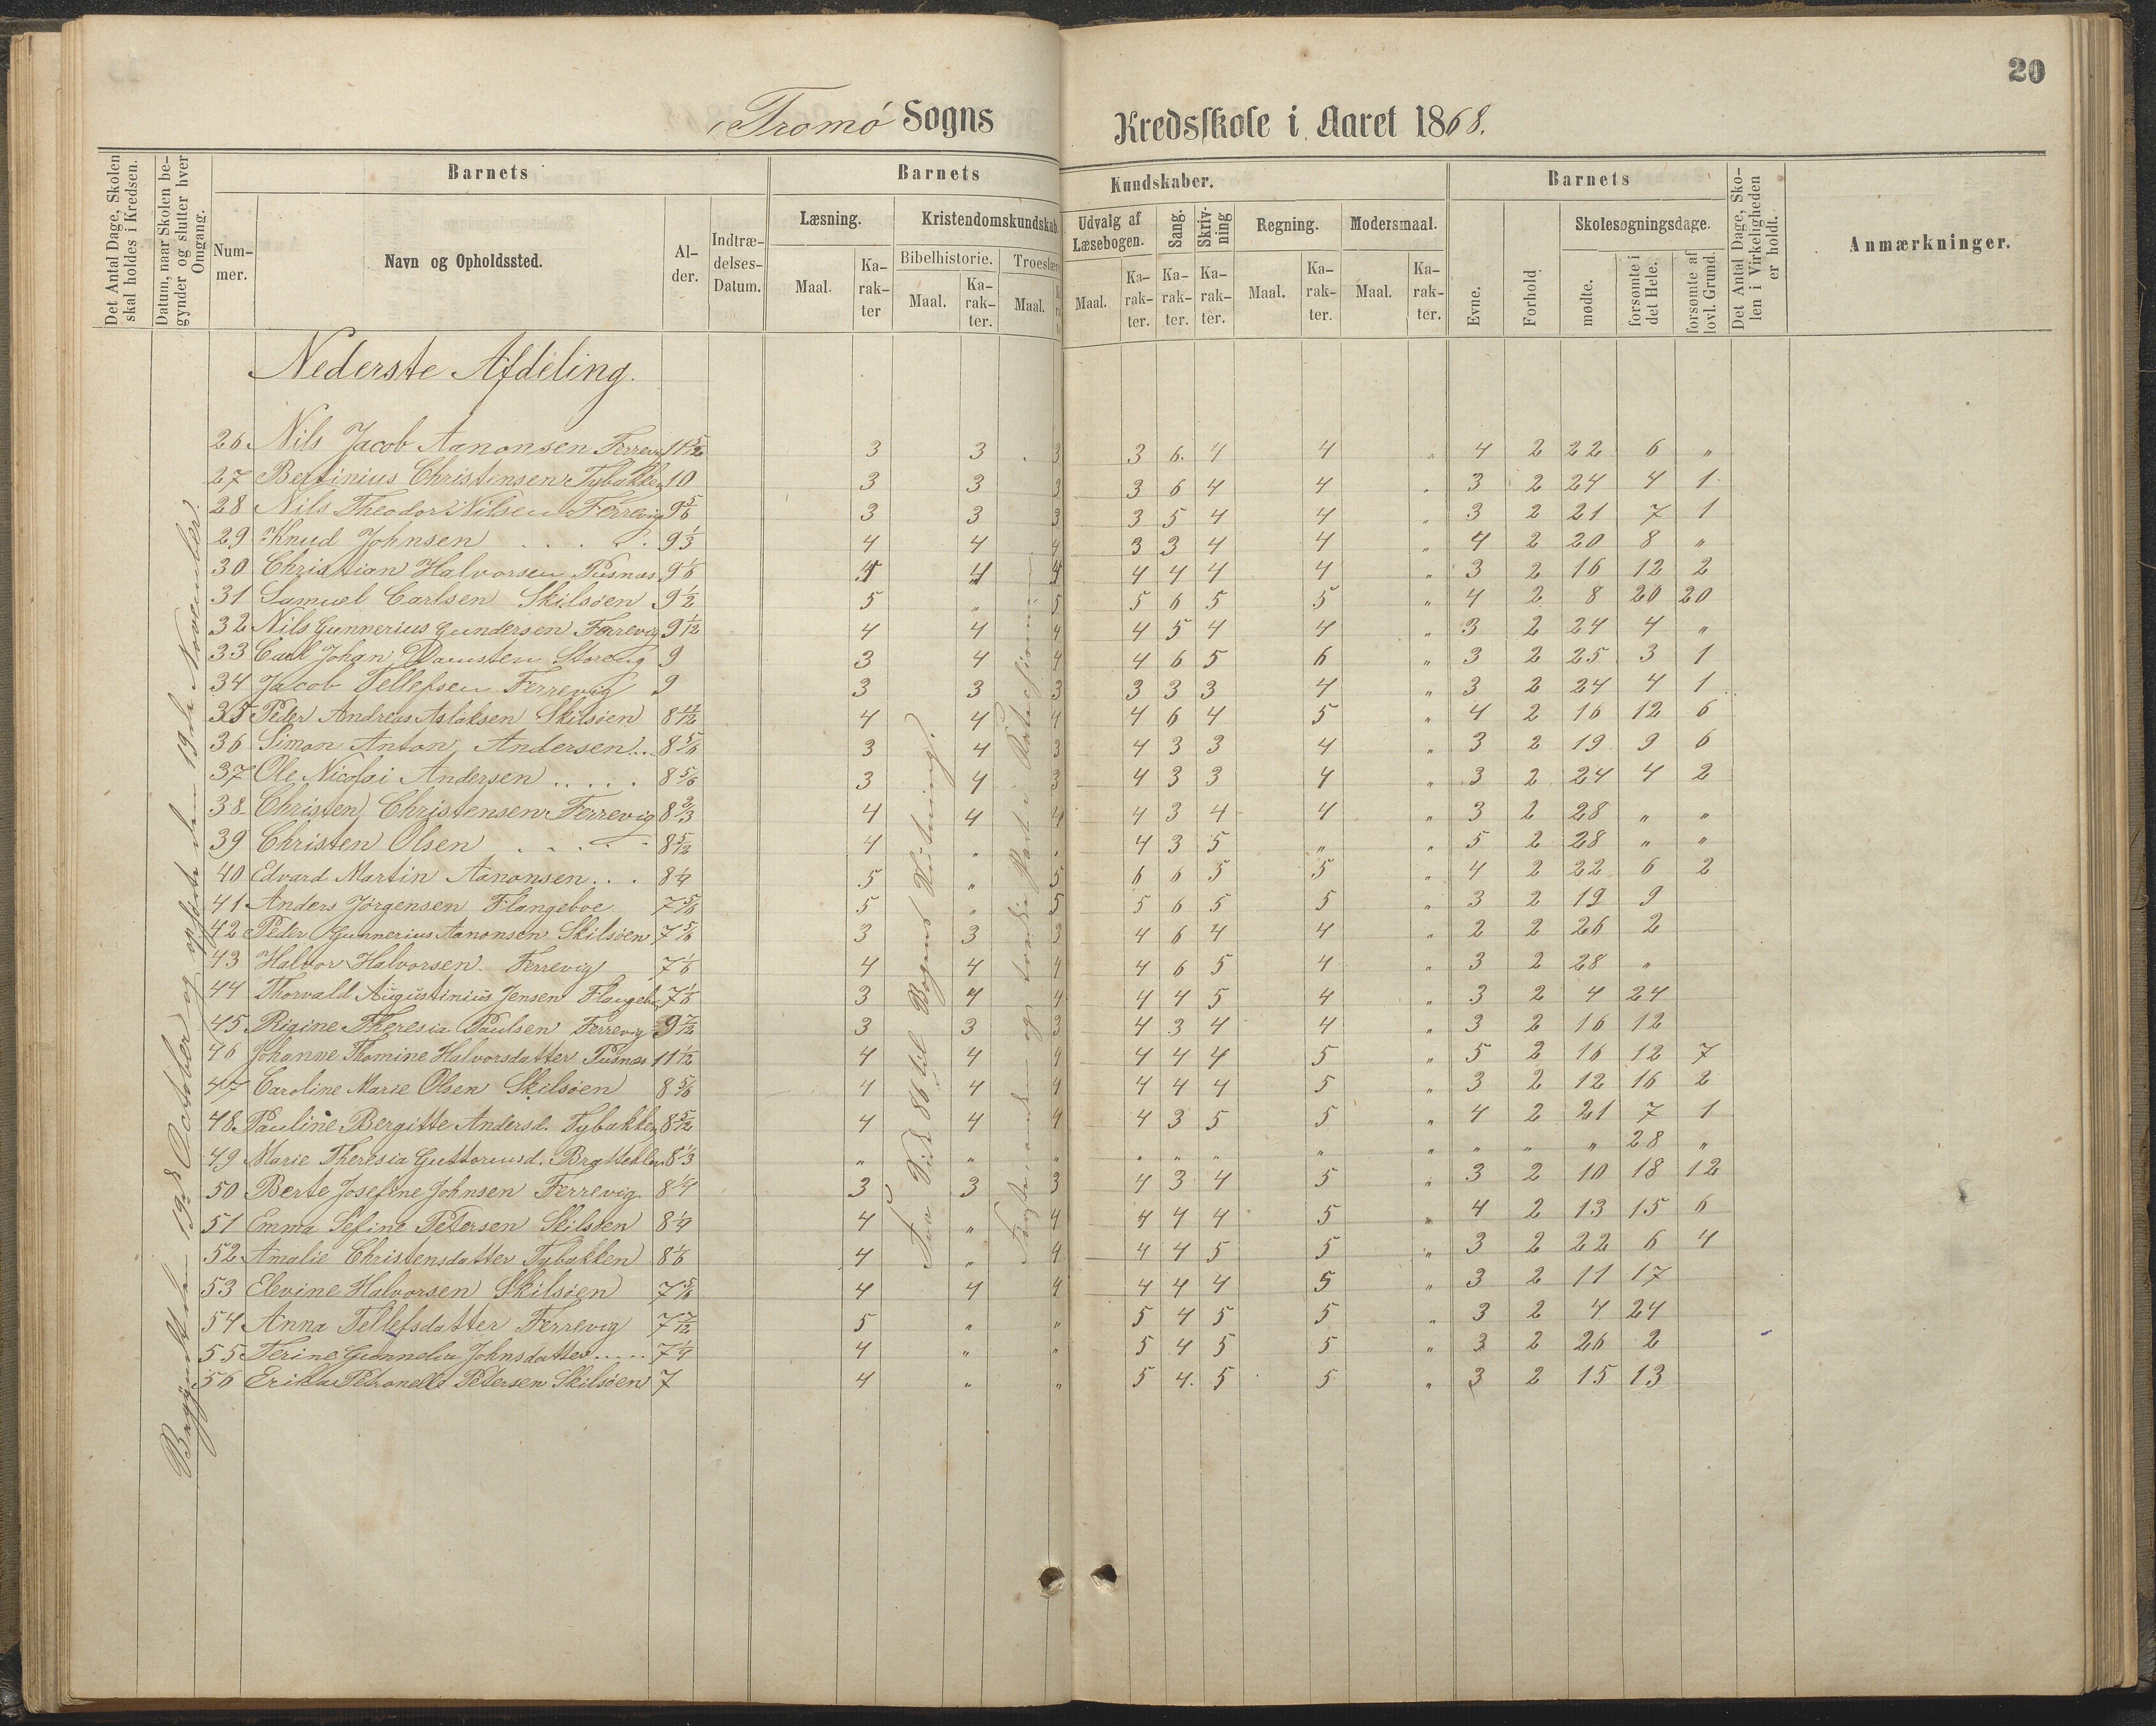 20
Tromø Sogns Kredsskole i Aaret 1868.
Det Antal Dage, Skolen skal holdes i Kredsen.
Datum, naar Skolen begynder og slutter hver Omgang.
Barnets
Nummer.
Navn og Opholdssted.
Alder.
Indtrædelses-Datum.
Barnets Kundskaber.
Læsning.
Maal.
Karakter
Kristendomskundskab.
Bibelhistorie.
Maal.
Karakter.
Troeslære
Maal.
Udvalg af Læsebogen.
Maal.
Karakter.
Sang.
Karakter.
Skrivning
Karakter.
Regning.
Maal.
Karakter.
Modersmaal.
Maal.
Karakter.
Barnets
Evne.
Forhold
Skolesøgningsdage.
mødte.
forsømte i det Hele.
forsømte af lovl. Grund.
Det Antal Dage, Skolen i Virkeligheden er holdt.
Anmærkninger.
Nederste Afdeling.
26 Nils Jacob Aanonsen Ferrevig 11 5/12 3 3 3 3 6. 4 4 " 4 2 22 6 "
27 Bertinius Christensen Tybakken 10 3 3 3 3 6 4 4 " 3 2 24 4 1
28 Nils Theodor Nilsen Ferrevig 9 5/6 3 3 3 3 5 4 4 " 3 2 21 7 1
29 Knud Johnsen . . . . 9 1/3 4 4 4 3 3 4 4 " 4 2 20 8 "
30 Christian Halvorsen Pusnæs 9 1/6 4 4 4 4 4 4 4 " 3 2 16 12 2
31 Samuel Carlsen Skilsøen 9 1/2 5 " 5 5 6 5 5 " 4 2 8 20 20
32 Nils Gunnerius Gundersen Ferrevig 9 1/12 4 4 4 4 5 4 4 " 3 2 24 4 "
33 Carl Johan 9 3 4 4 4 6 5 6 " 3 2 25 3 1
34 Jacob Tellefsen Ferrevig 9 3 3 3 3 3 3 4 " 3 2 24 4 1
35 Peder Andreas Aslaksen Skilsøen 8 11/12 4 4 4 4 6 4 5 " 4 2 16 12 6
36 Simon Anton Andersen . . 8 5/6 3 4 3 4 3 3 4 " 3 2 19 9 6
37 Ole Nicolai Andersen . . . . . 8 5/6 3 4 3 4 3 3 4 " 3 2 24 4 2
38 Christen Christensen Ferrevig 8 2/3 4 4 4 4 3 4 4 " 3 2 28 " "
39 Christen Olsen . . . . . 8 5/12 4 " " 4 3 5 " " 5 2 28 " "
40 Edvard Martin Aanonsen . . . 8 1/4 5 " 5 6 6 5 5 " 4 2 22 6 2
41 Anders Jørgensen Flangeboe 7 5/6 5 " 5 5 6 5 5 " 3 2 19 9
42 Peder Gunnerius Aanonsen Skilsøen 7 5/6 3 3 3 4 6 4 4 " 2 2 26 2
43 Halvor Halvorsen Ferrevig 7 1/6 4 4 4 4 6 5 4 " 3 2 28 "
44 Thorvald Augustinius Jensen Flangeb. 7 1/6 3 4 4 4 4 5 4 " 3 2 4 24
45 Rigine Theresia Paulsen Ferrevig 9 7/12 3 3 3 4 3 4 4 " 3 2 16 12
46 Johanne Thomine Halvorsdatter Pusnæs 11 1/12 4 4 4 4 4 4 5 " 5 2 16 12 7
47 Caroline Marie Olsen Skilsøen 8 5/6 4 4 4 4 4 4 5 " 3 2 12 16 2
48 Pauline Bergitte Andersd. Tybakken 8 5/12 4 4 4 4 3 5 5 " 4 2 21 7 1
49 Marie Theresia Guttormsd. 8 1/3 " " " " " " " " " " " 28 "
50 Berte Josefine Johnsen Ferrevig 8 1/4 3 3 3 4 3 4 5 " 3 2 10 18 12
51 Emma Sefine Petersen Skilsøen 8 1/4 4 " 4 4 4 4 5 " 4 2 13 15 6
52 Amalie Christensdatter Tybakken 8 1/6 4 " 4 4 4 5 5 " 3 2 22 6 4
53 Elevine Halvorsen Skilsøen 7 5/6 4 4 4 4 4 4 5 " 3 2 11 17
54 Anna Tellefsdatter Ferrevig 7 7/12 5 " " 5 4 5 5 " 3 2 4 24
55 Terine Gunnelia Johnsdatter . . . . . 7 1/4 4 " " 5 4 5 5 " 3 2 26 2
56 Erika Petronelle Petersen Skilsøen 7 4 " " 5 4. 5 5 " 3 2 15 13
Begyndt den 19de October og opsluttet den 19de November.
Fra Side 86 til Bogens Slutning.
Første og tredie Part i Katechismus